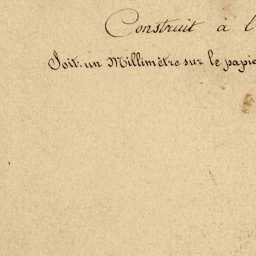 Construit à l
Soit un Millimètre sur le papie